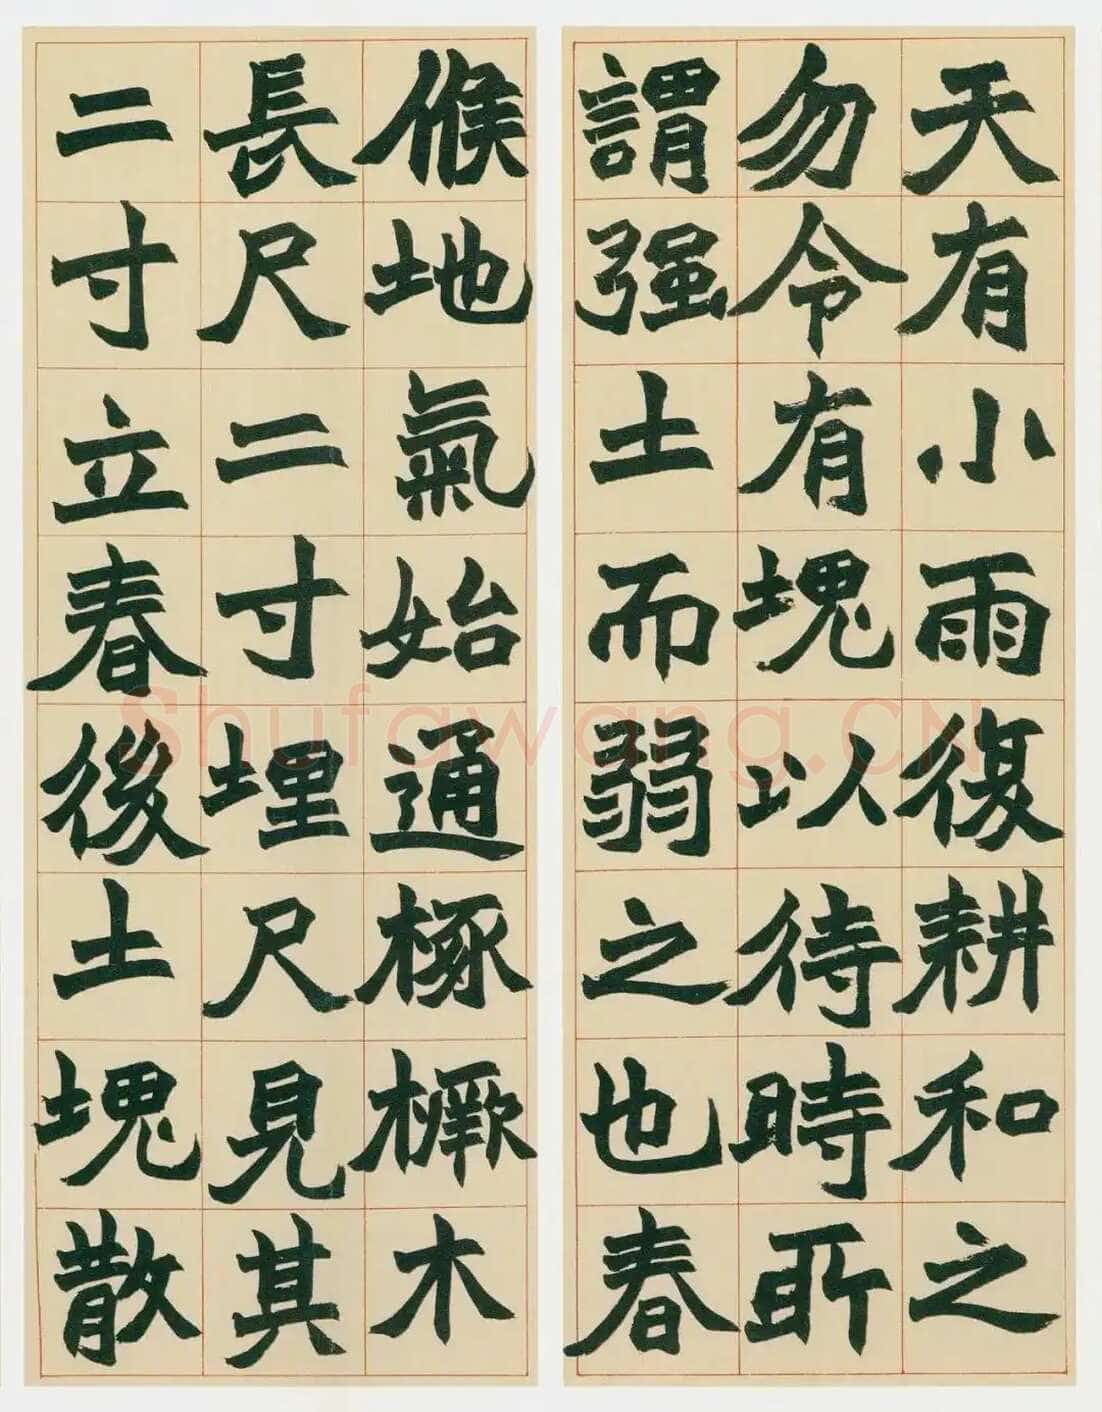 天有小雨復耕和之
勿令有塊以待時所
謂强土而弱之也春
候地氣始通椓橛木
長尺二寸埋尺見其
二寸立春後土塊散
Shufawang.CN